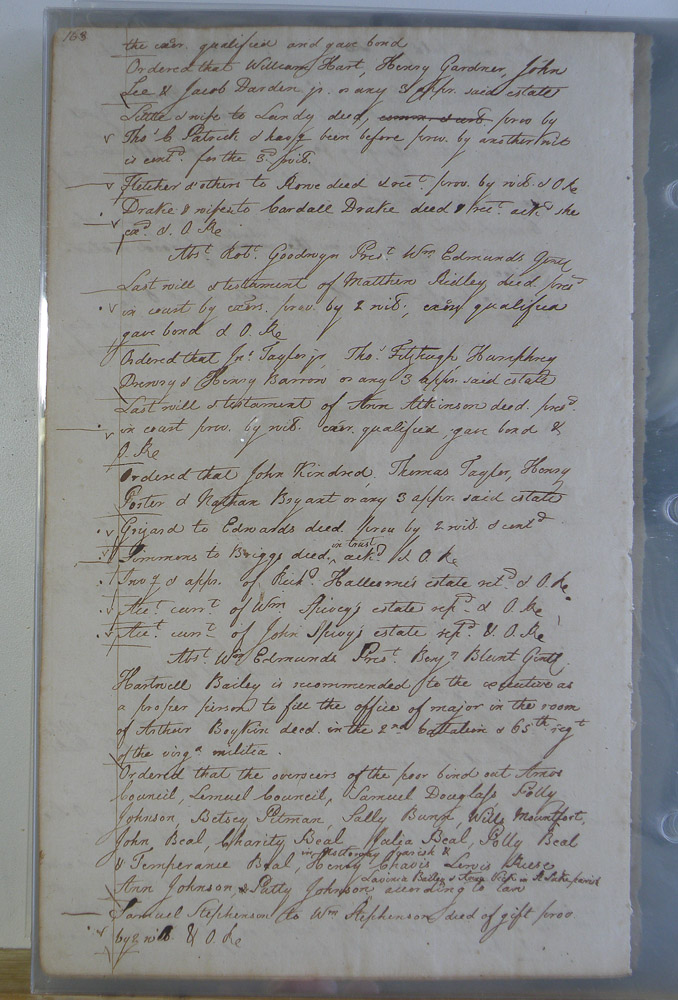 168
the exōr. qualified and gave bond
Ordered that William Hart, Henry Gardner, John
Lee & Jacob Darden jr. or any 3 appr. said estate
Little & wife to Lundy deed, prov by
Thos. C Patrick & havg been before prov. by another wit
is contd. for the 3d. wit.
Fletcher & others to Rowe deed & rect. prov. by wit. & O Re
Drake & wife to Cardall Drake deed & rect. ackd. she
exd. & O. Re
Abst. Robt. Goodwyn Prest. Wm. Edmunds Gent
Last will & testament of Matthew Ridley deed. presd.
in court by exors. prov. by 2 wits, exors qualified
gave bond & O Re
Ordered that Jno. Taylor jr, Thos. Fitzhugh Humphrey
Drewry & Henry Barrow or any 3 appr. said estate
Last will & testament of Ann Atkinson deed. presd.
in court prov. by wits. exor. qualified, gave bond &
O. Re
Ordered that John Kindred, Thomas Taylor, Henry
Porter & Nathan Bryant or any 3 appr. said estate
Grizard to Edwards deed. prov by 2 wits. & contd
Simmons to Briggs deed in trust, ackd. & O. Re
Invy & appr. of Richd. estate retd. & O. Re
Acct. currt. of Wm Spivey's estate retd. & O Re
Acct. currt. of John Spivy's estate retd. &. O. Re
Abst. Wm Edmunds Prest. Benjn. Blunt Gentl.
Hartwell Bailey is recommended to the executive as
a proper person to fill the office of major in the room
of Arthur Boykin deed. in the 2nd battalion & 65th regt
of the virga. militia.
Ordered that the overseers of the poor bind out Amos
Council, Lemuel Council, Samuel Douglass Polly
Johnson, Betsey Pitman, Sally Bunn, Wills Mountfort,
John, Beal, Charity Beal Julia Beal, Polly Beal
& Temperance Beal, in Nottoway parish & Henry Chavis Lewis
Ann Johnson, & Patty Johnson Lavinia Bailey & in St Lukes parish according to law
Samuel Stephenson to Wm Stephenson deed of gift prov.
by 2 wits. & O. Re